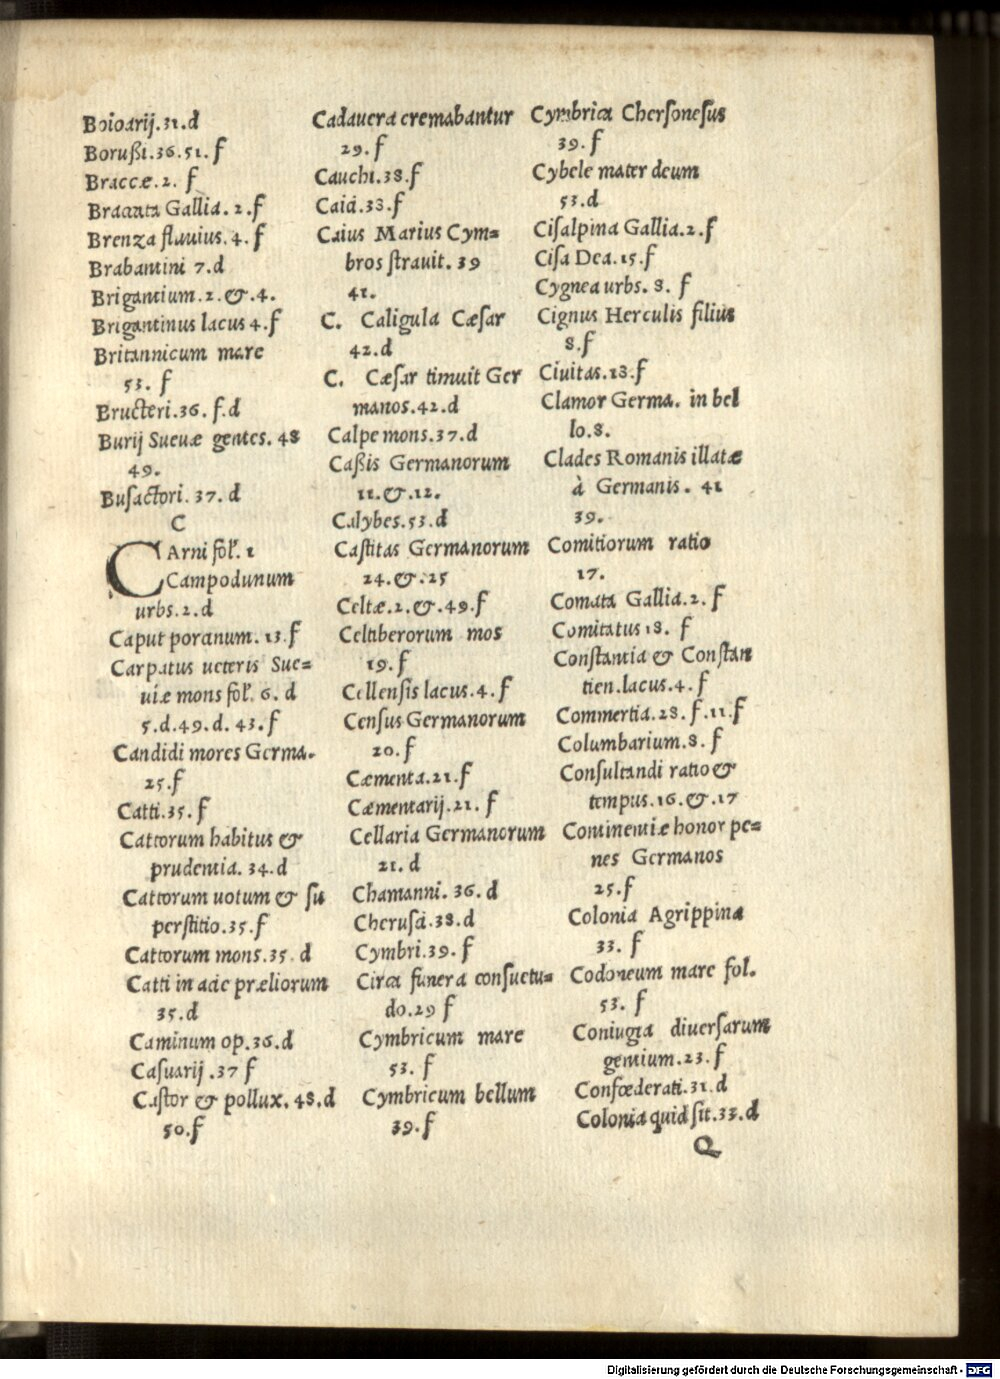 Boioarij.31.d
Borußi.36.51.f
Braccæ.2. f
Bracata Gallia.2.f
Brenza flauius.4.f
Brabantini 7.d
Brigantium.2.&.4.
Brigantinus lacus 4.f
Britannicum mare
53. f
Bructeri.36. f.d
Burij Sueuæ gentes. 48
49.
Busactori. 37. d
C
CArni fol. 1
Campodunum
urbs.2.d
Caput poranum. 13.f
Carpatus ueteris Sue=
uiæ mons fol. 6. d
5.d.49.d. 43.f
Candidi mores Germa.
25.f
Catti.35.f
Cattorum habitus &
prudentia. 34.d
Cattorum uotum & su
perstitio.35.f
Cattorum mons.35.d
Catti in acie præliorum
35.d
Caminum op.36.d
Casuarij .37 f
Castor & pollux. 48.d
50.f
Cadauera cremabantur
29.f
Cauchi.38.f
Caia.33.f
Caius Marius Cym=
bros strauit.39
41.
C. Caligula Cæsar
42.d
C. Cæsar timuit Ger
manos.42.d
Calpe mons.37.d
Caßis Germanorum
11.&.12.
Calybes.53.d
Castitas Germanorum
24.&.25
Celtæ.2.&.49.f
Celtiberorum mos
19.f
Cellensis lacus.4.f
Census Germanorum
20.f
Cæmenta.21.f
Cæmentarij.21. f
Cellaria Germanorum
21.d
Chamanni. 36.d
Cherusci.38.d
Cymbri.39.f
Circa funera consuetu=
do.29 f
Cymbricum mare
53. f
Cymbricum bellum
39.f
Cymbrica Chersonesus
39.f
Cybele mater deum
53.d
Cisalpina Gallia.2.f
Cisa Dea.15.f
Cygnea urbs. 8. f
Cignus Herculis filius
8.f
Ciuitas.18.f
Clamor Germa. in bel
lo.8.
Clades Romanis illatæ
à Germanis. 41
39.
Comitiorum ratio
17.
Comata Gallia.2. f
Comitatus 18. f
Constantia & Constan
tien.lacus.4.f
Commertia.28.f.11.f
Columbarium.8. f
Consultandi ratio &
tempus.16.&.17
Continentiæ honor pe=
nes Germanos
25.f
Colonia Agrippina
33. f
Codoneum mare fol.
53. f
Coniugia diuersarum
gentium.23.f
Confœderati.31.d
Colonia quid sit.33.d
Q
Digitalisierung gefördert durch die Deutsche Forschungsgemeinschaft - DFG